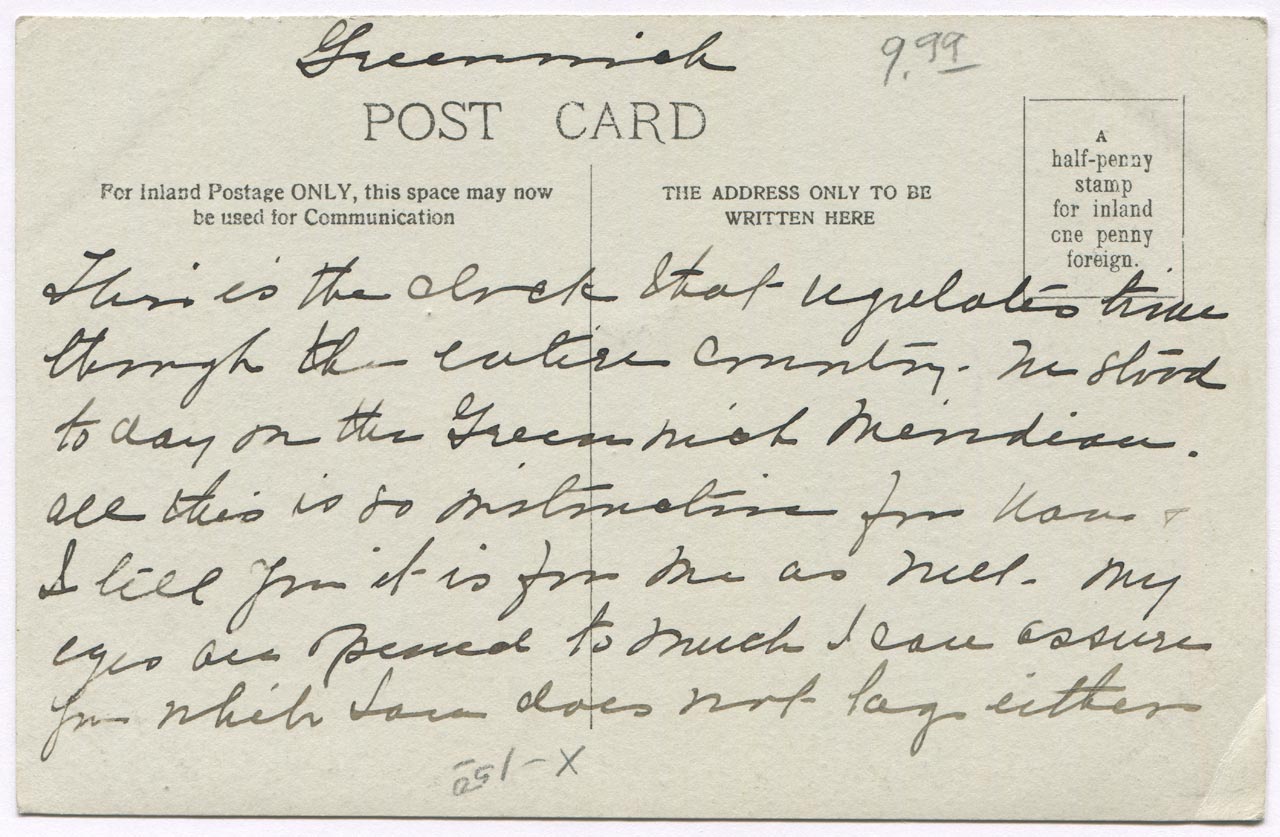 Greenwich
9.99
POST CARD
For Inland Postage ONLY, this space may now
be used for Communication
THE ADDRESS ONLY TO BE
WRITTEN HERE
A
half-penny
stamp
for inland
one penny
foreign.
This is the clock that regulates time
through the entire country. We stood
today on the Greenwich Meridian.
all this is so instructive for &
I tell you it is for me as well. My
eyes are opened to much I can assure
you which does not lag either
-X